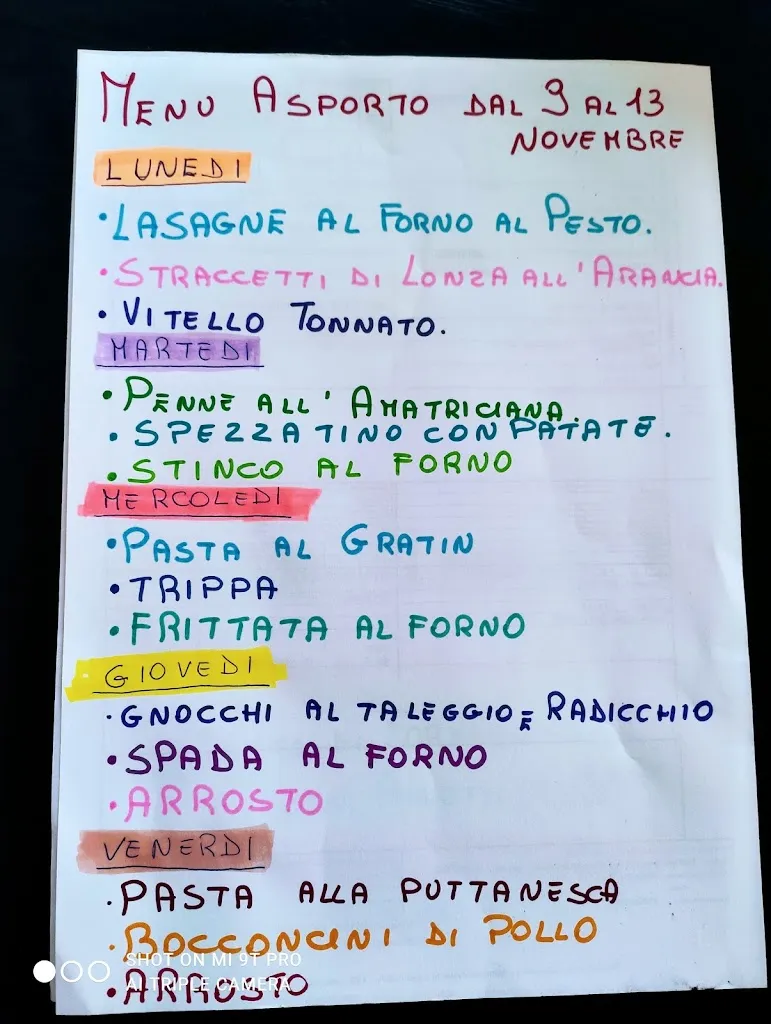 MENU ASPORTO DAL 9 AL 13
NOVEMBRE
LUNEDI
• LASAGNE AL FORNO AL PESTO.
• STRACCETTI DI LONZA ALL'ARANCIA.
• VITELLO TONNATO.
MARTEDI
• PENNE ALL'AMATRICIANA.
• SPEZZATINO CON PATATE.
• STINCO AL FORNO
MERCOLEDI
• PASTA AL GRATIN
• TRIPPA
• FRITTATA AL FORNO
GIOVEDI
• GNOCCHI AL TALEGGIO E RADICCHIO
• SPADA AL FORNO
• ARROSTO
VENERDI
• PASTA ALLA PUTTANESCA
• BOCCONCINI DI POLLO
• ARROSTO
SHOT ON MI 9T PRO
AI TRIPLE CAMERA